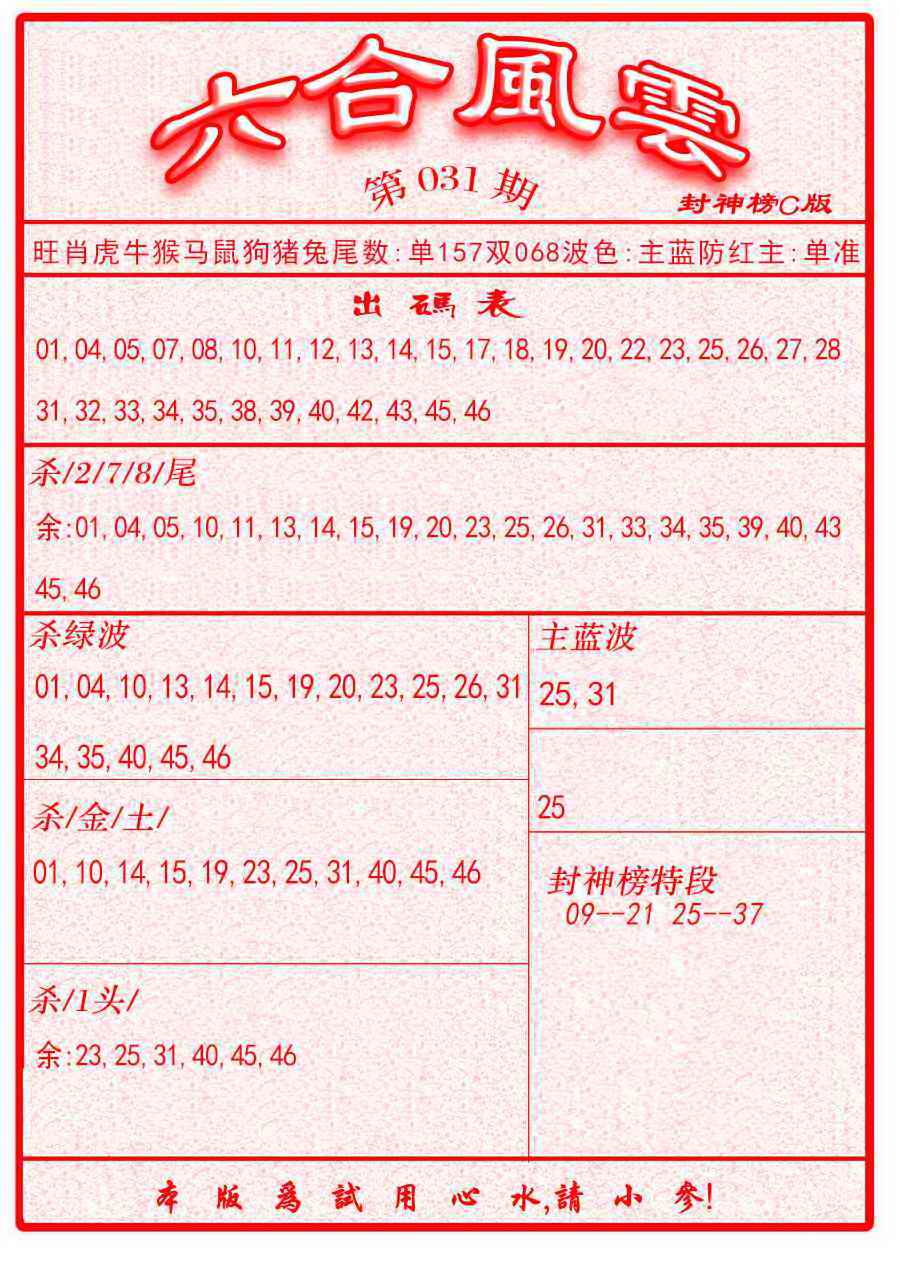 六合風雲
第031期
封神榜C版
旺肖虎牛猴马鼠狗猪兔尾数:单157双068波色:主蓝防红主:单准
出碼表
01,04,05,07,08,10,11,12,13,14,15,17,18,19,20,22,23,25,26,27,28
31,32,33,34,35,38,39,40,42,43,45,46
杀/2/7/8/尾
余:01,04,05,10,11,13,14,15,19,20,23,25,26,31,33,34,35,39,40,43
45,46
杀绿波
01,04,10,13,14,15,19,20,23,25,26,31
34,35,40,45,46
杀/金/土/
01,10,14,15,19,23,25,31,40,45,46
杀/1头/
余:23,25,31,40,45,46
主蓝波
25,31
25
封神榜特段
09--21 25--37
本版爲試用心水,請小參!